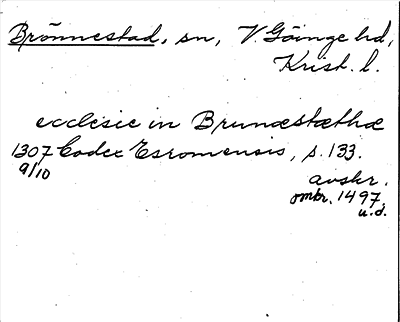 Brönnestad, sn, V Göinge hd,
Krist. l.
ecclesie in Brunæstæthæ
1307 Codex Esromensis, s. 133.
9/10
avskr.
omkr. 1497.
u.d.